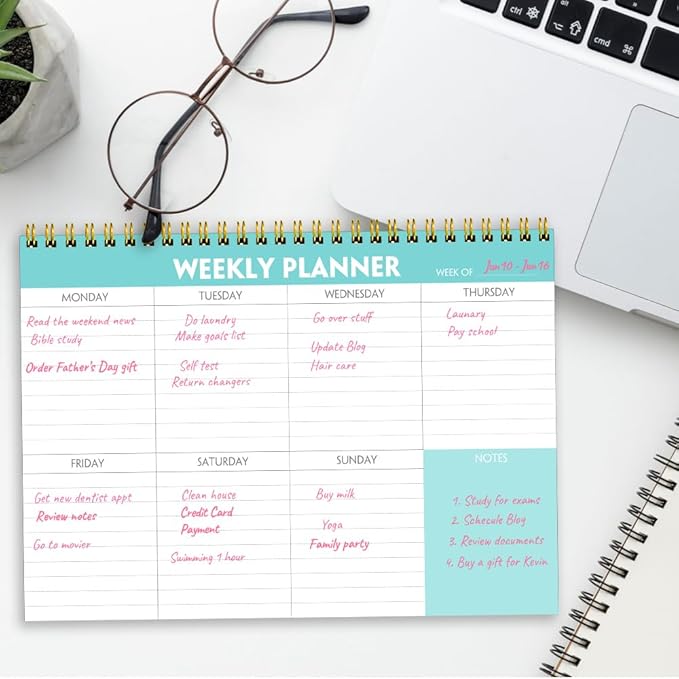 ctrl
cmd
WEEKLY PLANNER
WEEK OF Jun 10 - Jun 16
MONDAY
Read the weekend news
Bible study
Order Father's Day gift
TUESDAY
Do laondry
Make goals list
Self test
Return changers
WEDNESDAY
Go over stuff
Update Blog
Hair care
THURSDAY
Launary
Pay school
FRIDAY
Get new dentist appt
Review notes
Go to movier
SATURDAY
Clean house
Credit Card
Payment
Swimming 1 hour
SUNDAY
Buy milk
Yoga
Family party
NOTES
1. Study for exams
2. Schecule Blog
3. Review documents
4. Buy a gift for Kevin